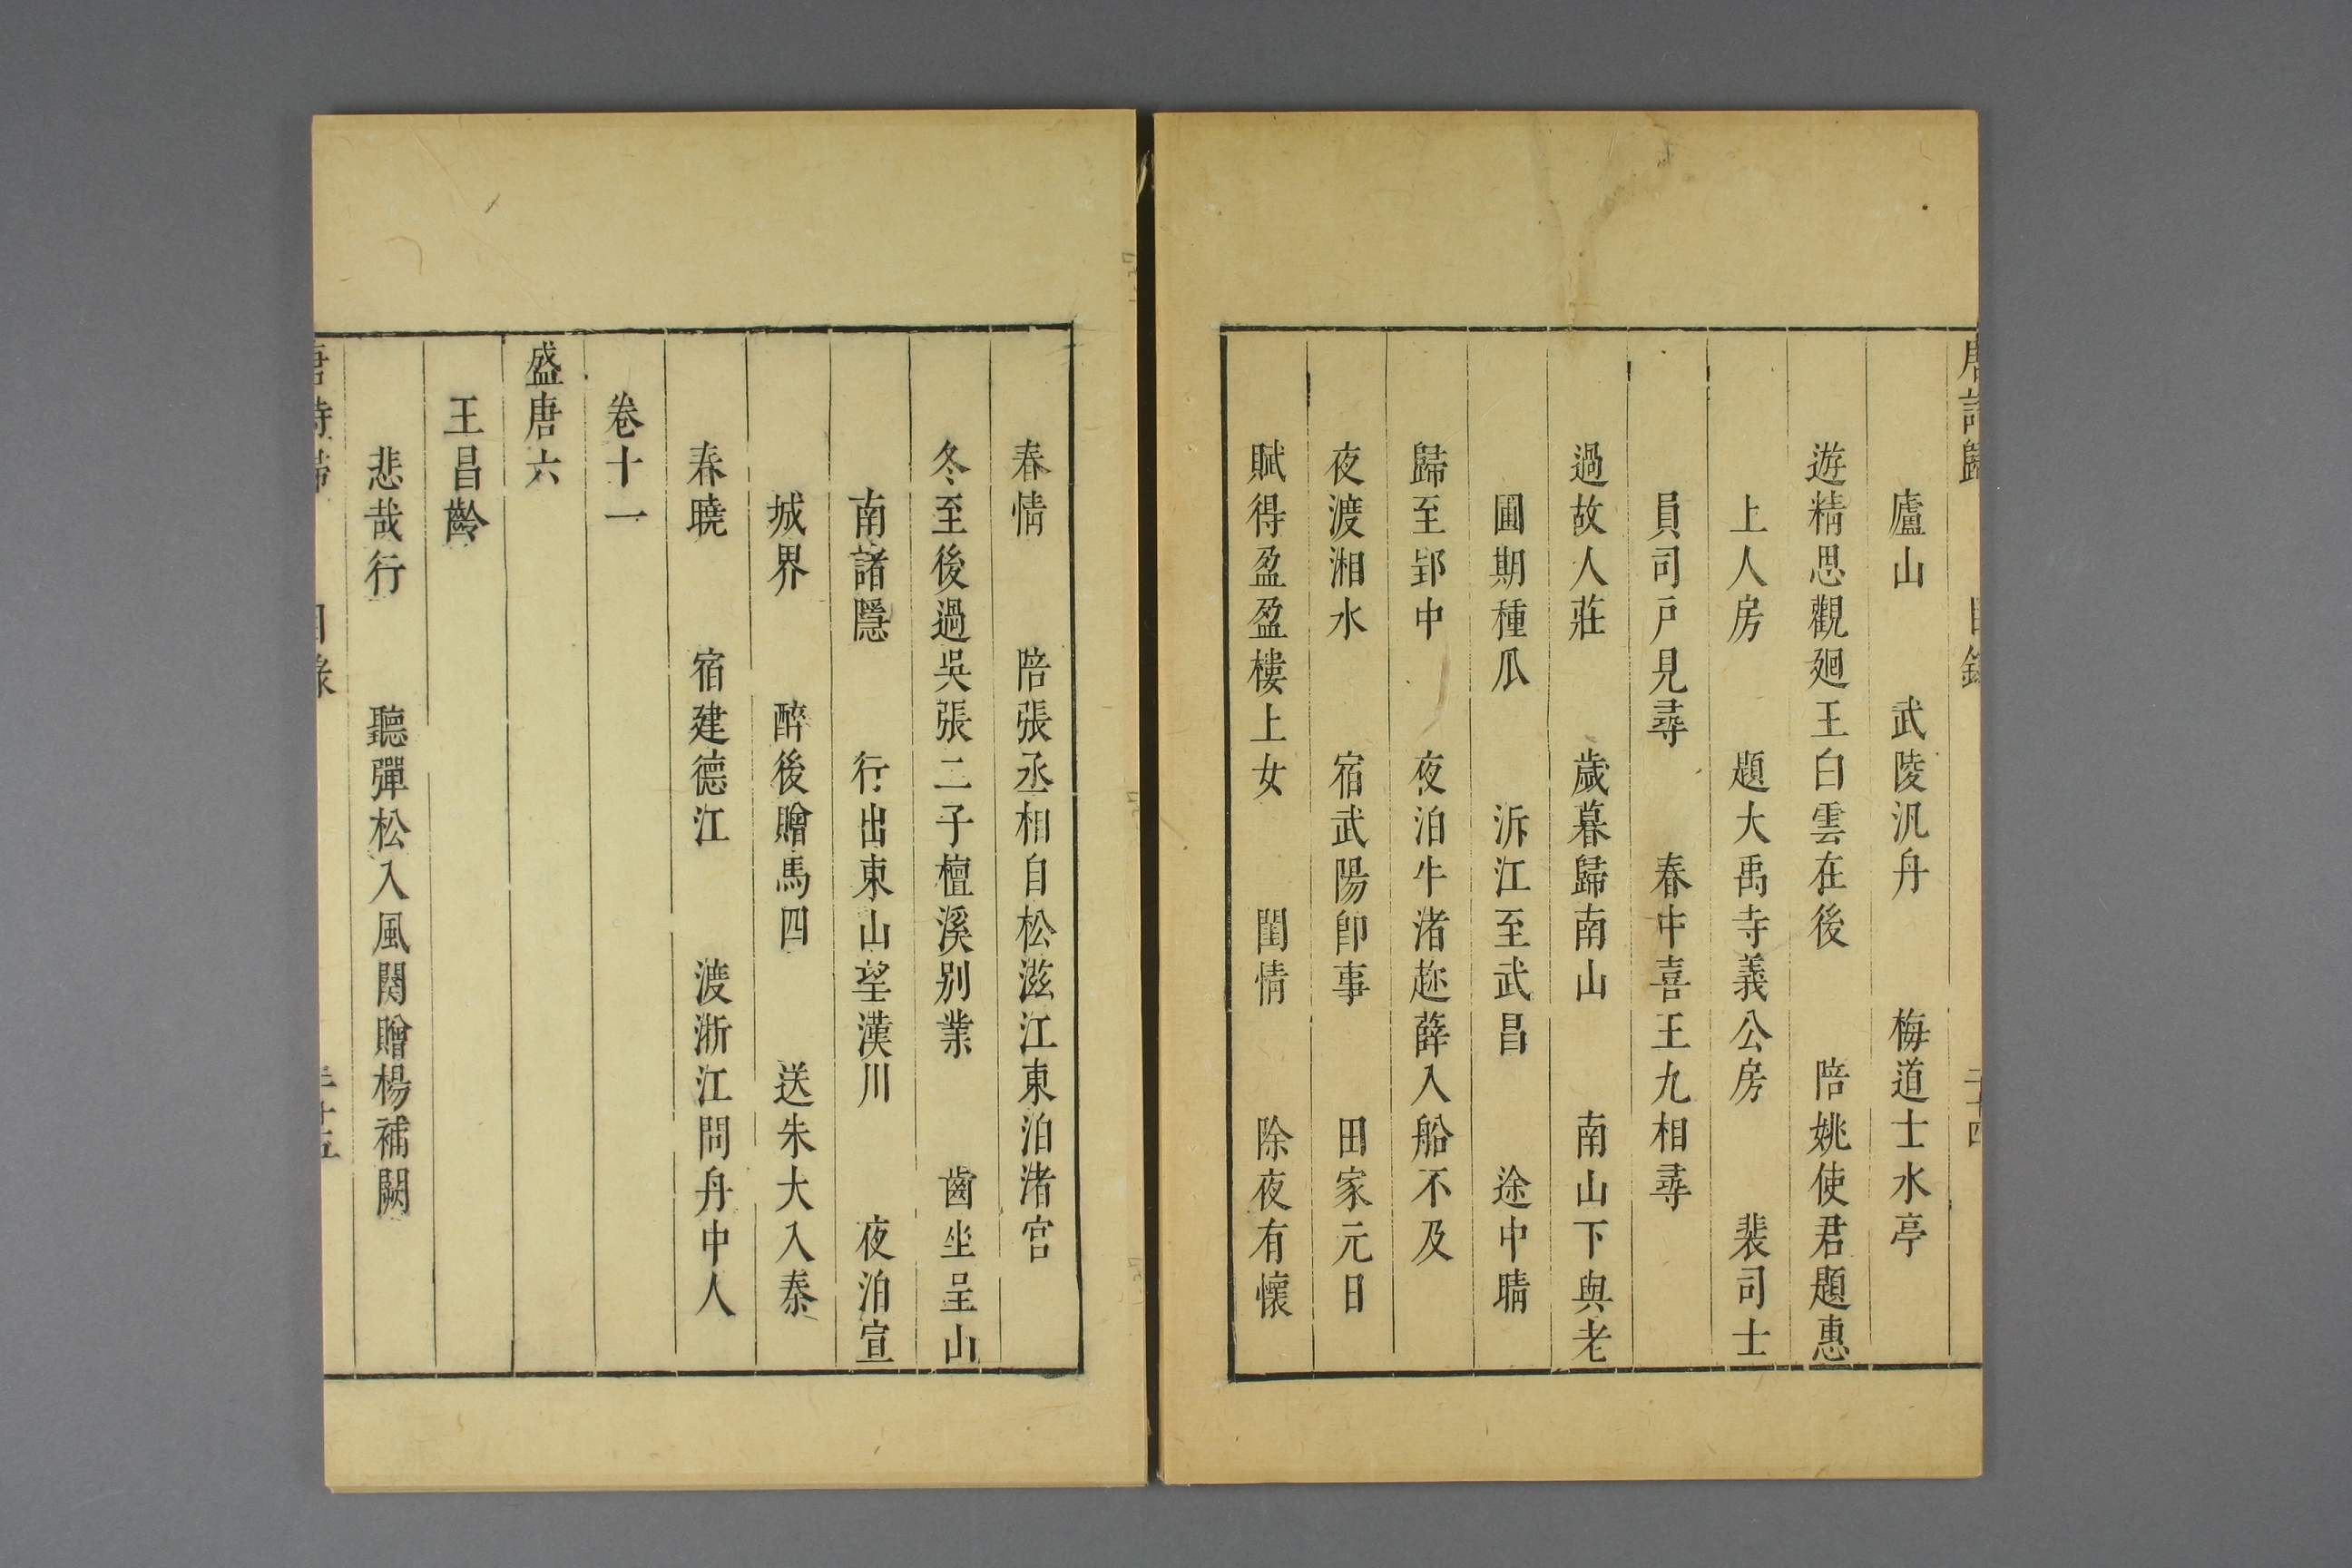 唐詩歸 目錄 二十四
廬山 武陵汎舟 梅道士水亭
遊精思觀廻王白雲在後 陪姚使君題惠
上人房 題大禹寺義公房 裴司士
員司戸見尋 春中喜王九相尋
過故人莊 歲暮歸南山 南山下與老
圃期種瓜 泝江至武昌 途中晴
歸至郢中 夜泊牛渚趂薛八船不及
夜渡湘水 宿武陽卽事 田家元日
賦得盈盈樓上女 閨情 除夜有懷
春情 陪張丞相自松滋江東泊渚宮
冬至後過吳張二子檀溪别業 齒坐呈山
南諸隱 行出東山望漢川 夜泊宣
城界 醉後贈馬四 送朱大入秦
春曉 宿建德江 渡浙江問舟中人
卷十一
盛唐六
王昌齡
悲哉行 聽彈松入風闋贈楊補闕
唐詩歸 目錄 二十五